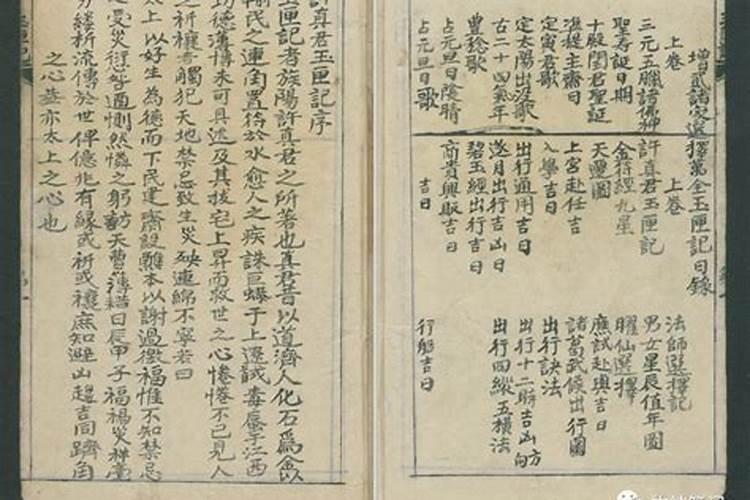 增貳諸家選擇萬全玉匣記目錄
上卷
三元五臘諸佛神
聖壽誕日期
十殿閻君聖誕
準提主齋日
定寅君歌
定太陽出沒歌
古二十四氣年
豐稔歌
占元旦日陰晴
占元旦日歌
上卷
許真君玉匣記
金符經九星
天遷圖
上官赴任吉
入學吉日
出行通用吉日
逐月出行吉凶日
碧玉經出行吉日
商賈興販吉日
法師選擇記
男女星辰值年圖
臞仙選擇
應試赴舉吉日
諸葛武侯出行圖
出行訣法
出行十二時吉凶方向
出行四縱五橫法
行船吉日
許真君玉匣記序
玉匣記者族陽許真君之所著也真君昔以道濟人化石爲金以
輸民之逋角置符於水愈人之疾誅巨蟒于上遼馘毒蜃于江西
功德薄博未可具述及其拔宅上昇而救世之心惓惓不已見人
之祈禳者觸犯天地禁忌致生災殃連綿不寧若曰
太上以好生為德而下民建齋設醮本以謝過徼福惟不知禁忌
受災愆咎適惻然憐之躬訪天曹簿
日辰甲子福禍災祥
析流傳於世俾億兆有緣或祈或禳庶知避凶趨吉同躋
之心葢亦太上之心也